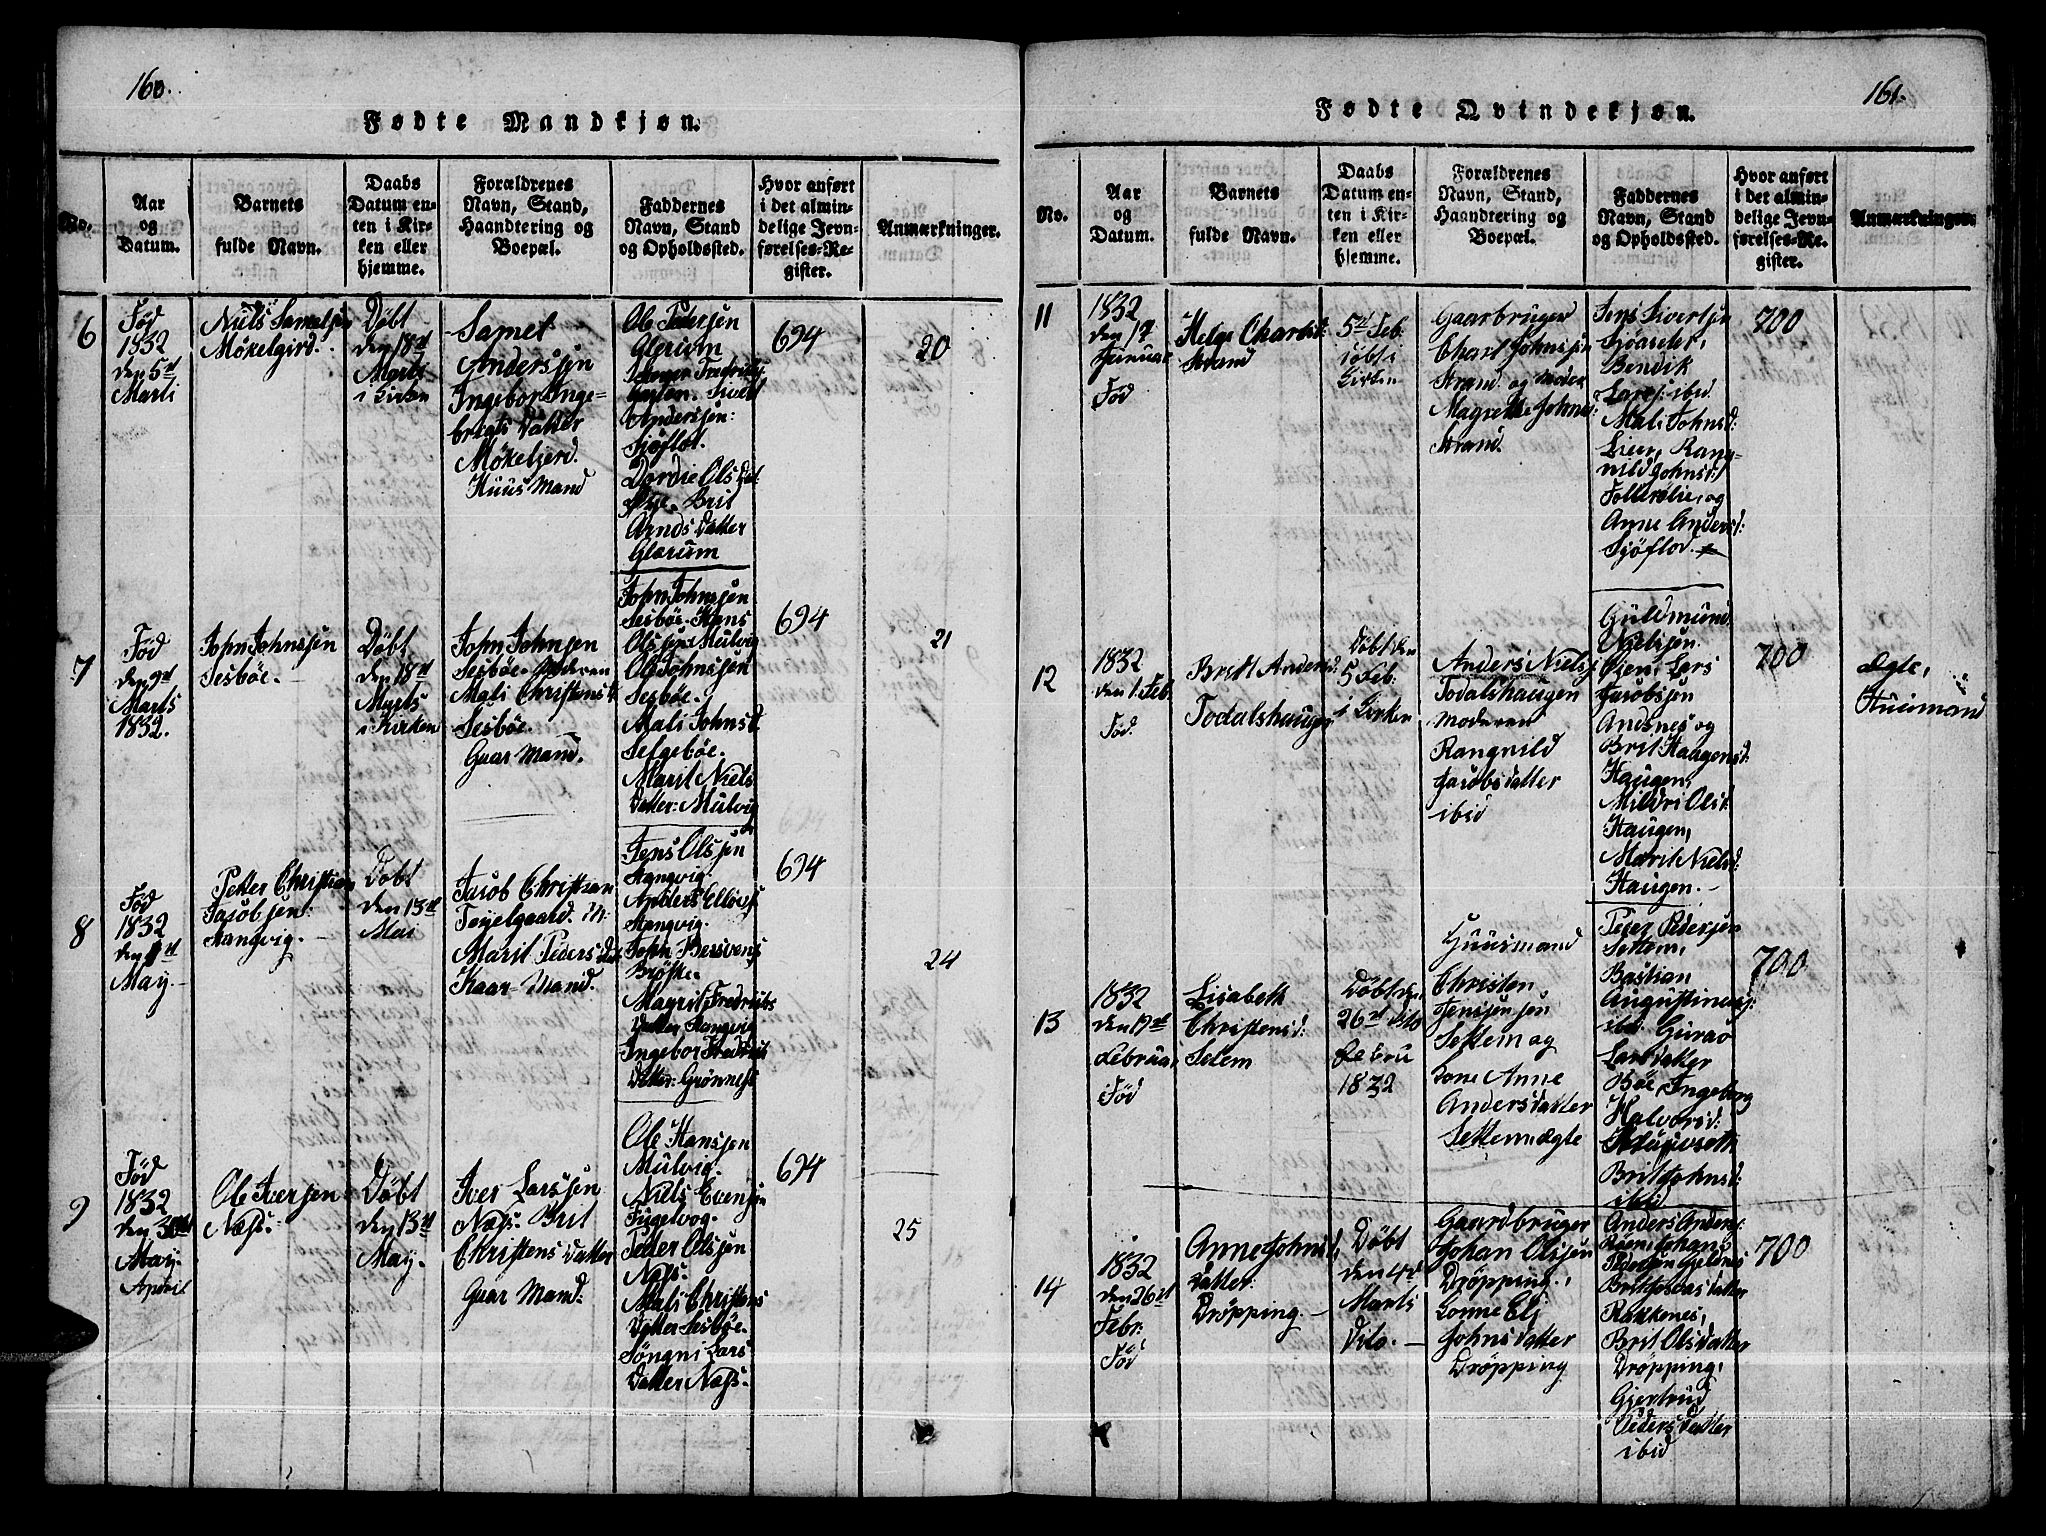 160.
Fødte Mandkjøn.
No.
Aar
og
Datum.
Barnets
fulde Navn.
Daabs
Datum en-
ten i Kir-
ken eller
hjemme.
Forældrenes
Navn, Stand,
Haandtering og
Boepæl.
Faddernes
Navn, Stand
og Opholdssted.
Hvor anført
i det almin-
delige Jevn-
førelses-Re-
gister.
Anmærkninger.
6
Fød
1832
den 5te
Marti
Niels Samelsen
Møkelgird.
Døbt
den 18de
Marti
i Kirken
Samel
Anderssen
Ingebor Inge-
brigts Datter
Møkeljerd.
Huus Mand
Ole Pedersen
Glærum
Anderssen:
Sjøflot.
Dordie Ols Dat
Øye. Brit
Arnds Datter
Glærum
694
20
7
Fød
den 9de
Marts
1832.
John Johnssen
Sesbøe.
Døbt
den 18de
Marts
i Kirken
John Johnsen
Sesbøe. Moderen
Mali Christensd.
Sesbøe.
Gaar Mand.
John Johnssen
Sesbøe. Hans
Olssen Mulvig
Ole Johnssen
Sesbøe.
Mali Johnsd.
Selgebøe.
Marit Niels
Datter: Mulvig
694
21
8
Fød
1832
den 1de
May.
Petter Christian
Jacobsen:
Stangvig.
Døbt
den 13de
Mai
Jacob Christian
Marit Peders Dat
Gaar Mand.
Jens Olssen
Stangvig.
Anders
Stangvig.
John
Brøske.
Magrit Fredriks
Datter Stangvig
Ingebor Fredriks
Datter: Grønnes
694
24
9
Fød
1832
den 30te
May.
April
Ole Iversen
Næss.
Døbt
den 13de
May.
Iver Larssen
Næss. Brit
Christens Datter
Gaar Mand.
Ole Hanssen
Mulvig.
Niels Evensen
Fugelvog.
Peder Olssen
Næss.
Mali Christens
Datter Sesbøe.
Søngni Lars
Datter Næss.
694
25
161.
Fødte Qvindekjøn.
No.
Aar
og
Datum.
Barnets
fulde Navn.
Daabs
Datum en-
ten i Kir-
ken eller
hjemme.
Forældrenes
Navn, Stand,
Haandtering og
Boepæl.
Faddernes
Navn, Stand
og Opholdssted.
Hvor anført
i det almin-
delige Jevn-
førelses-Re-
gister.
Anmærkninger.
11
1832
den 17
Januar
Fød
Helge Charlsd:
Strand
5te Feb.
døbt i
Kirken
Gaarbruger
Charl Johnsen
Strand og Moder
Magrethe Johnsd:
Strand.
Jens Sivertsen
Sjøaseter,
Bendik
Lars: ibid.
Mali Johnsd:
Lier, Rang-
nild Johnsd:
Follerølie, og
Anne Andersd:
Sjøflod.
700
12
1832
den 1. Feb.
Fød.
Bredt Andersd.
Todalshaugen
Døbt den
5 Feb:
i Kirken
Anders Niels:
Todalshaugen
Moderen
Rangnild
Jacobsdatter
ibid
Guldmund
Nielsen
Øien, Lars
Jacobsen
Andsnes og
Brit Haagensd.
Haugen,
Mildri Olsd:
Haugen,
Marit Nielsd:
Haugen.
700
Ægte,
Huusmand
13
1832
den 17de
Februar
Fød
Lisabeth
Christensd:
Setem
Døbt den
26de
Febru
1832
Huusmand
Christen
Jenssensen
Settem og
Kone Anne
Andersdatter
Settem ægte
Peter Pedersen
Settem,
Bastian
ibd. Guroe
Larsdatter
Bøe, Ingeborg
Halvorsd:
Brit Johnsd:
ibid
700
14
1832
den 26de
Febr:
Fød
Anne Johns
Datter:
Drøpping.
Døbt
den 4de
Marti
Dito.
Gaardbruger
Johan Olssen
Drøpping,
Konne Eli
Johnsdatter
Drøpping
Anders Anders:
Røen, Johans
Pedersen
Brit
Rakkenes,
Brit Olsdatter
Drøpping,
Gjertrud
Pedersdatter
ibid
700